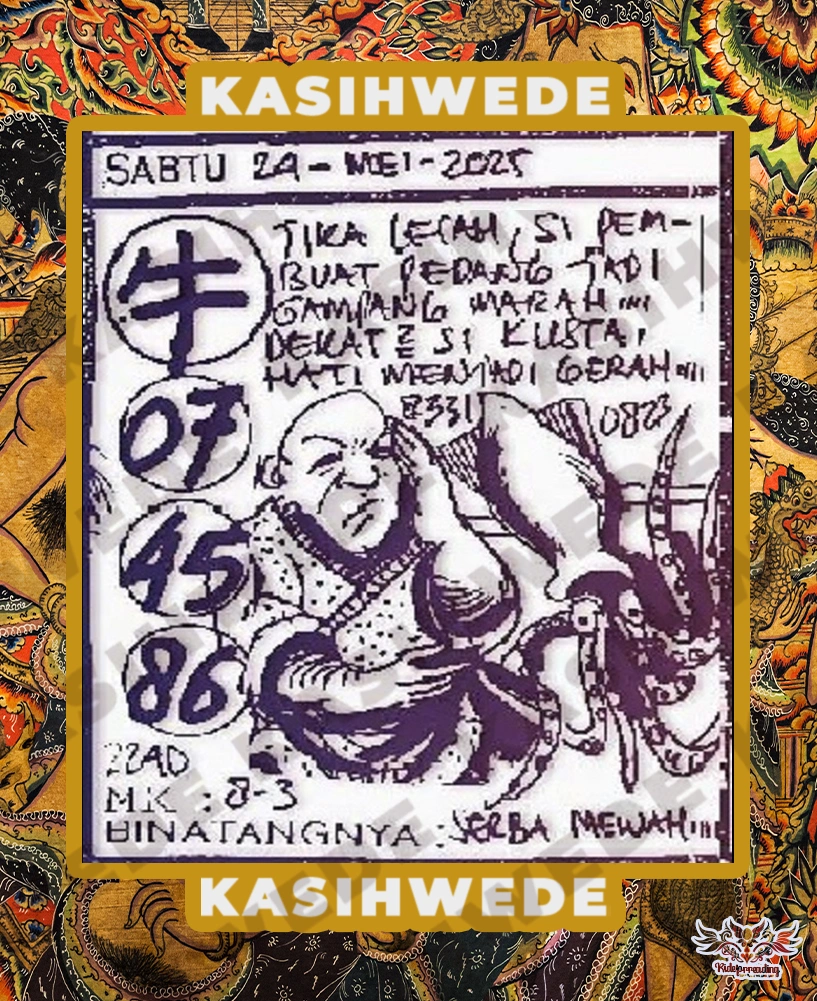 KASIHWEDE
SABTU 24 - MEI - 2025
牛
TIKA LECAH, SI PEM-
BUAT PEDANG TADI
GAMPANG MARAH....
DEKAT2 SI KUSTA,
HATI MENJADI GERAH....
8331
0823
07
45
86
2240
M.K : 8-3
BINATANGNYA : SERBA MEWAH....
KASIHWEDE